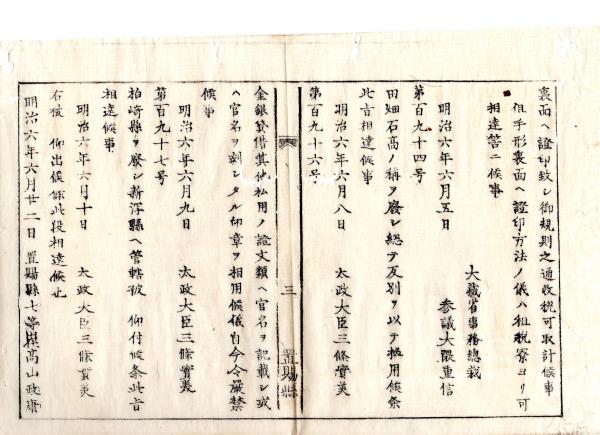 裏面ヘ證印致シ御規則之通收税可取計候事
但手形裏面ヘ證印方法ノ儀ハ租税寮ヨリ可
相達筈ニ候事
大藏省事務總裁
明治六年六月五日
参議大隈重信
第百九十四号
田畑石高ノ稱ヲ廢シ総テ反別ヲ以テ相用候条
此旨相達候事
明治六年六月八日
太政大臣三條實美
第百九十六号
三
置賜縣
金銀貸借其他私用ノ證文類ヘ官名ヲ記載シ或
ヘ官名ヲ刻シタル印章ヲ相用候儀自今令嚴禁
候事
明治六年六月九日
太政大臣三條實美
第百九十七号
柏崎縣ヲ廢シ新潟縣ヘ管轄被 仰付候条此旨
相達候事
明治六年六月十日
太政大臣三條實美
右被 仰出候條此段相達候也
明治六年六月廿二日
置賜縣七等出仕髙山政康